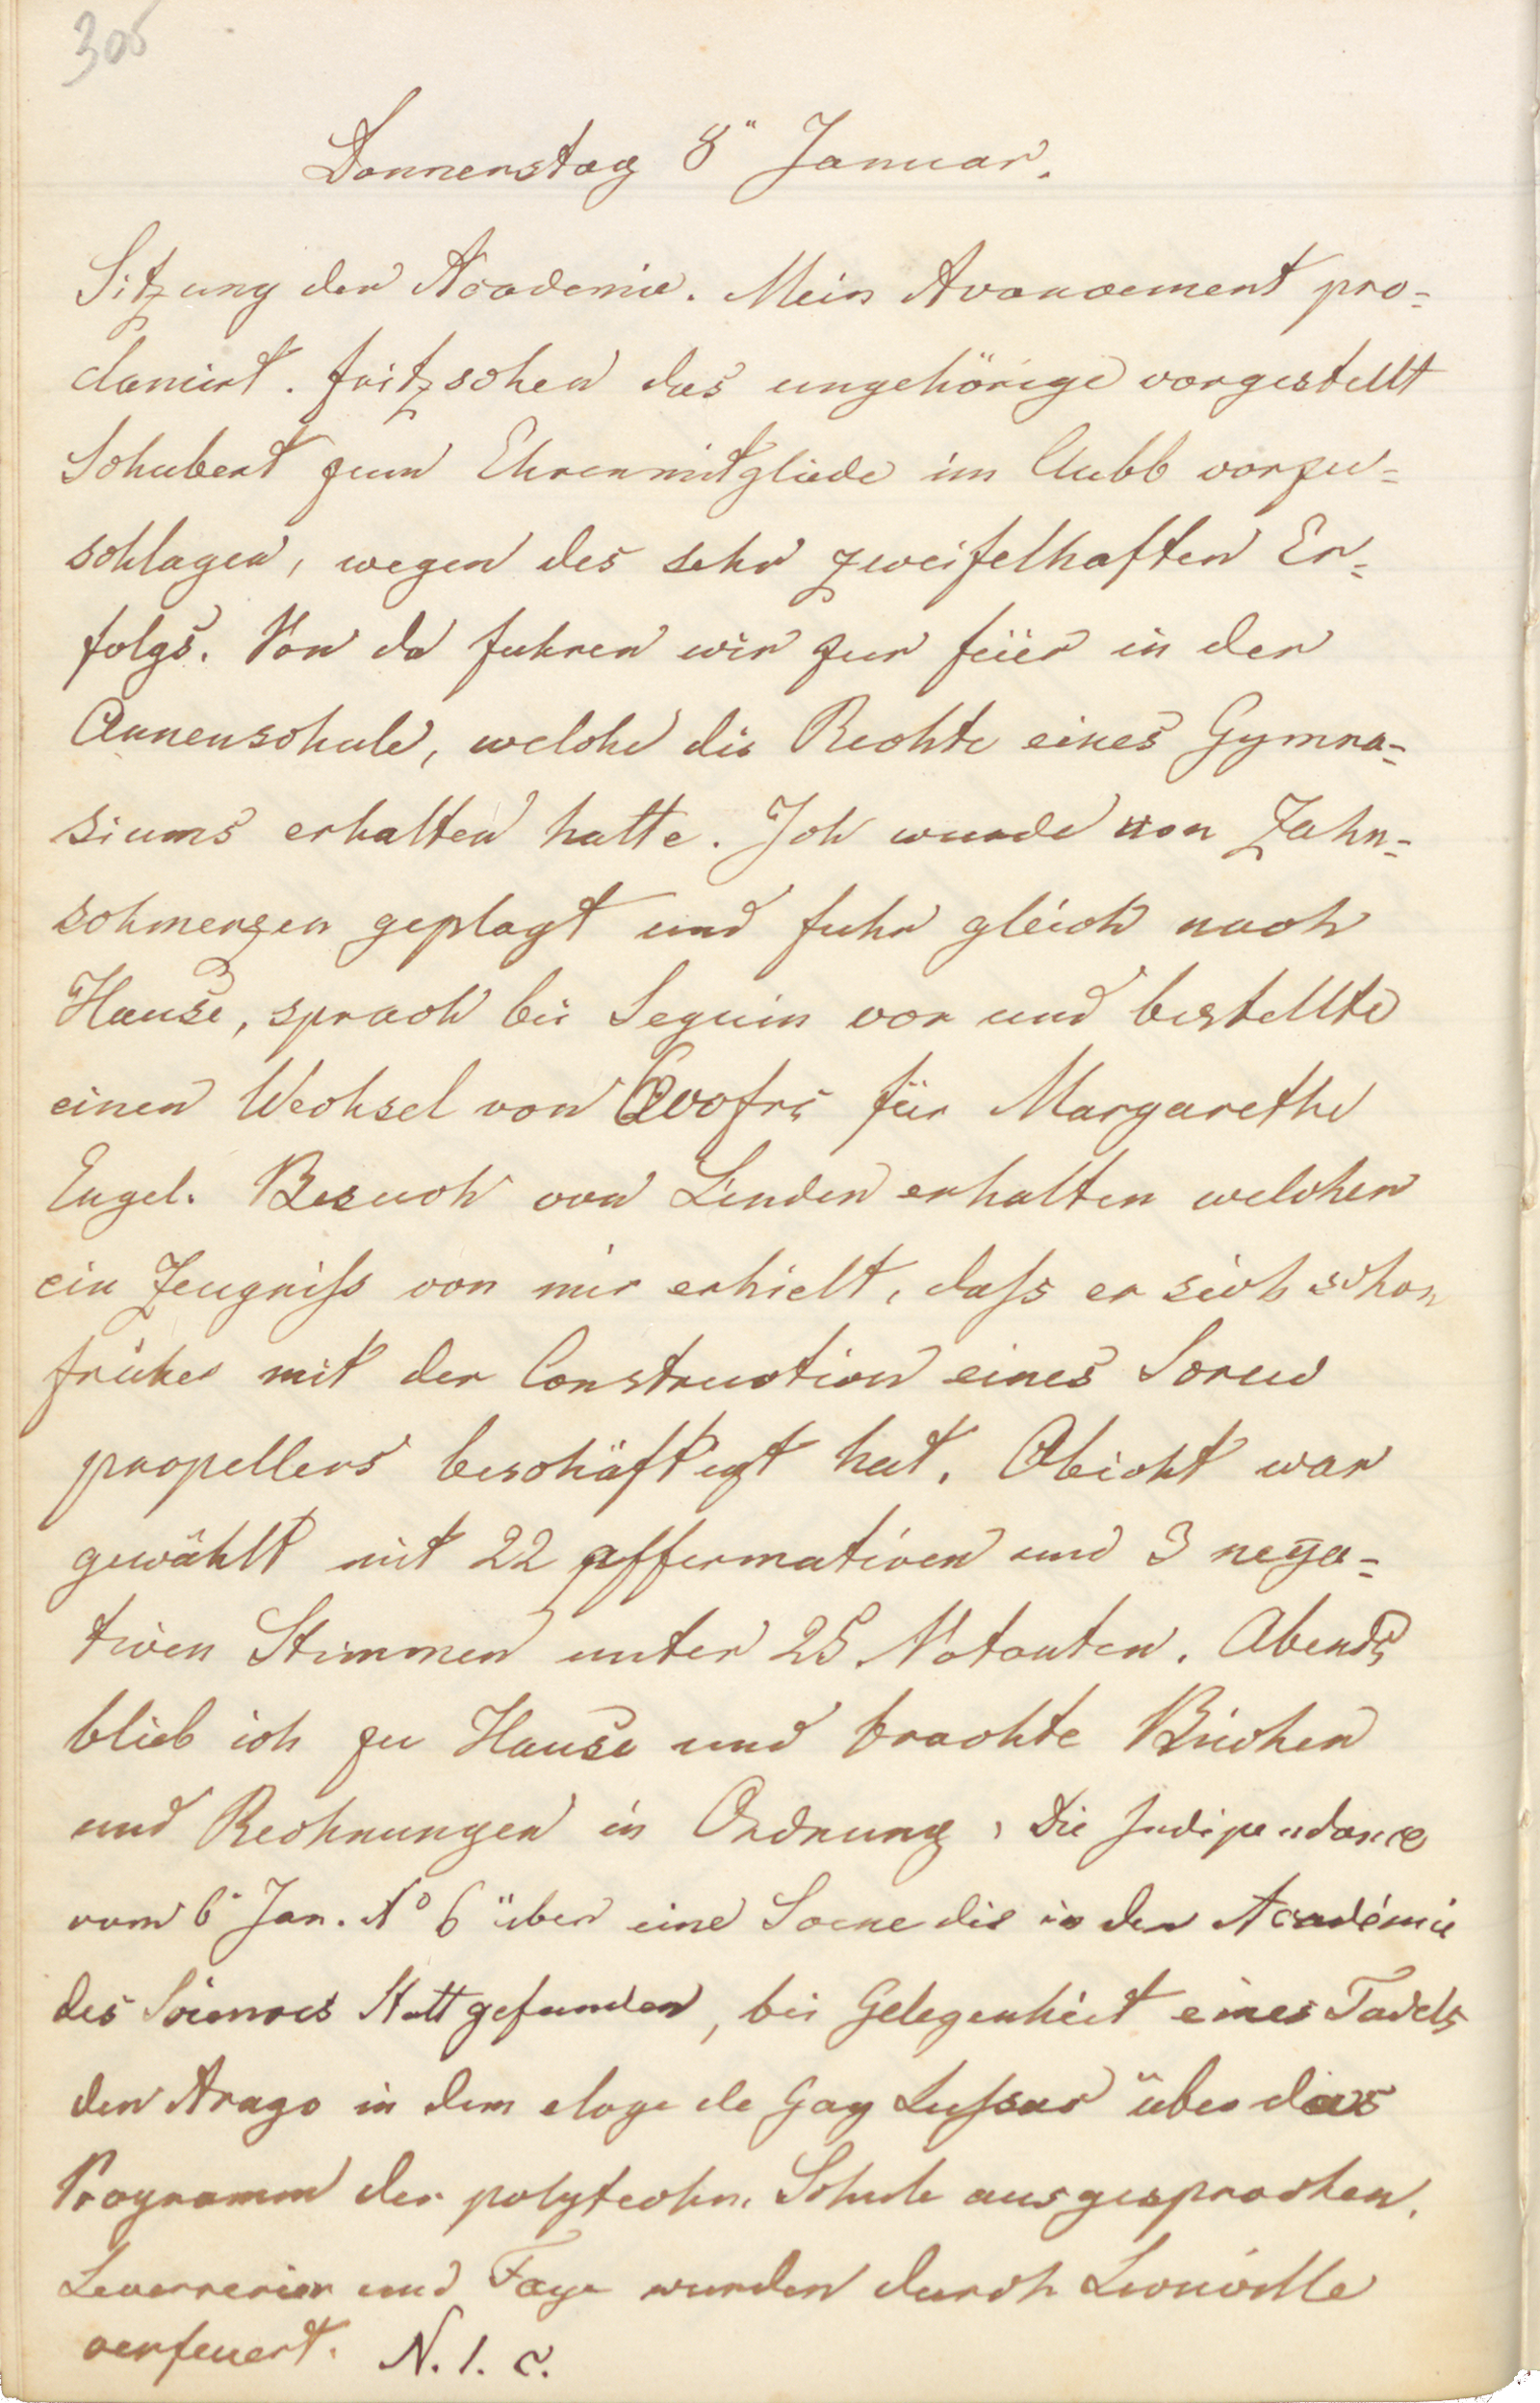 305
Donnerstag 8" Januar.
Sitzung der Academie. Mein Avancement pro-
clamirt. Fritzschen das ungehörige vorgestellt
Schubert zum Ehrenmitgliede im Clubb vorzu-
schlagen, wegen des sehr zweifelhaften Er-
folgs. Von da fuhren wir zur Feier in der
Annenschule, welche die Rechte eines Gymna-
siums erhalten hatte. Ich wurde von Zahn-
schmerzen geplagt und fuhr gleich nach
Hause, sprach bei Seguin vor und bestellte
einen Wechsel von frs für Margarethe
Engel. Besuch von Linden erhalten welcher
ein Zeugniss von mir erhielt, dass er sich schon
früher mit der Construction eines Screw
propellers beschäftigt hat. Abicht war
gewählt mit 22 affermativen und 3 nega-
tiven Stimmen unter 25 Votanten. Abends
blieb ich zu Hause und brachte Bücher
und Rechnungen in Ordnung, Die Indipendance
vom 6" Jan. No 6 über eine Scene die in der Académie
des Sciences Statt gefunden, bei Gelegenheit eines Tadels
den Arago in dem eloge de Gay Lussac über das
Programm der polytechn. Schule ausgesprochen.
Leverrier und Faye wurden durch Liouville
verfeuert. N. 1. c.